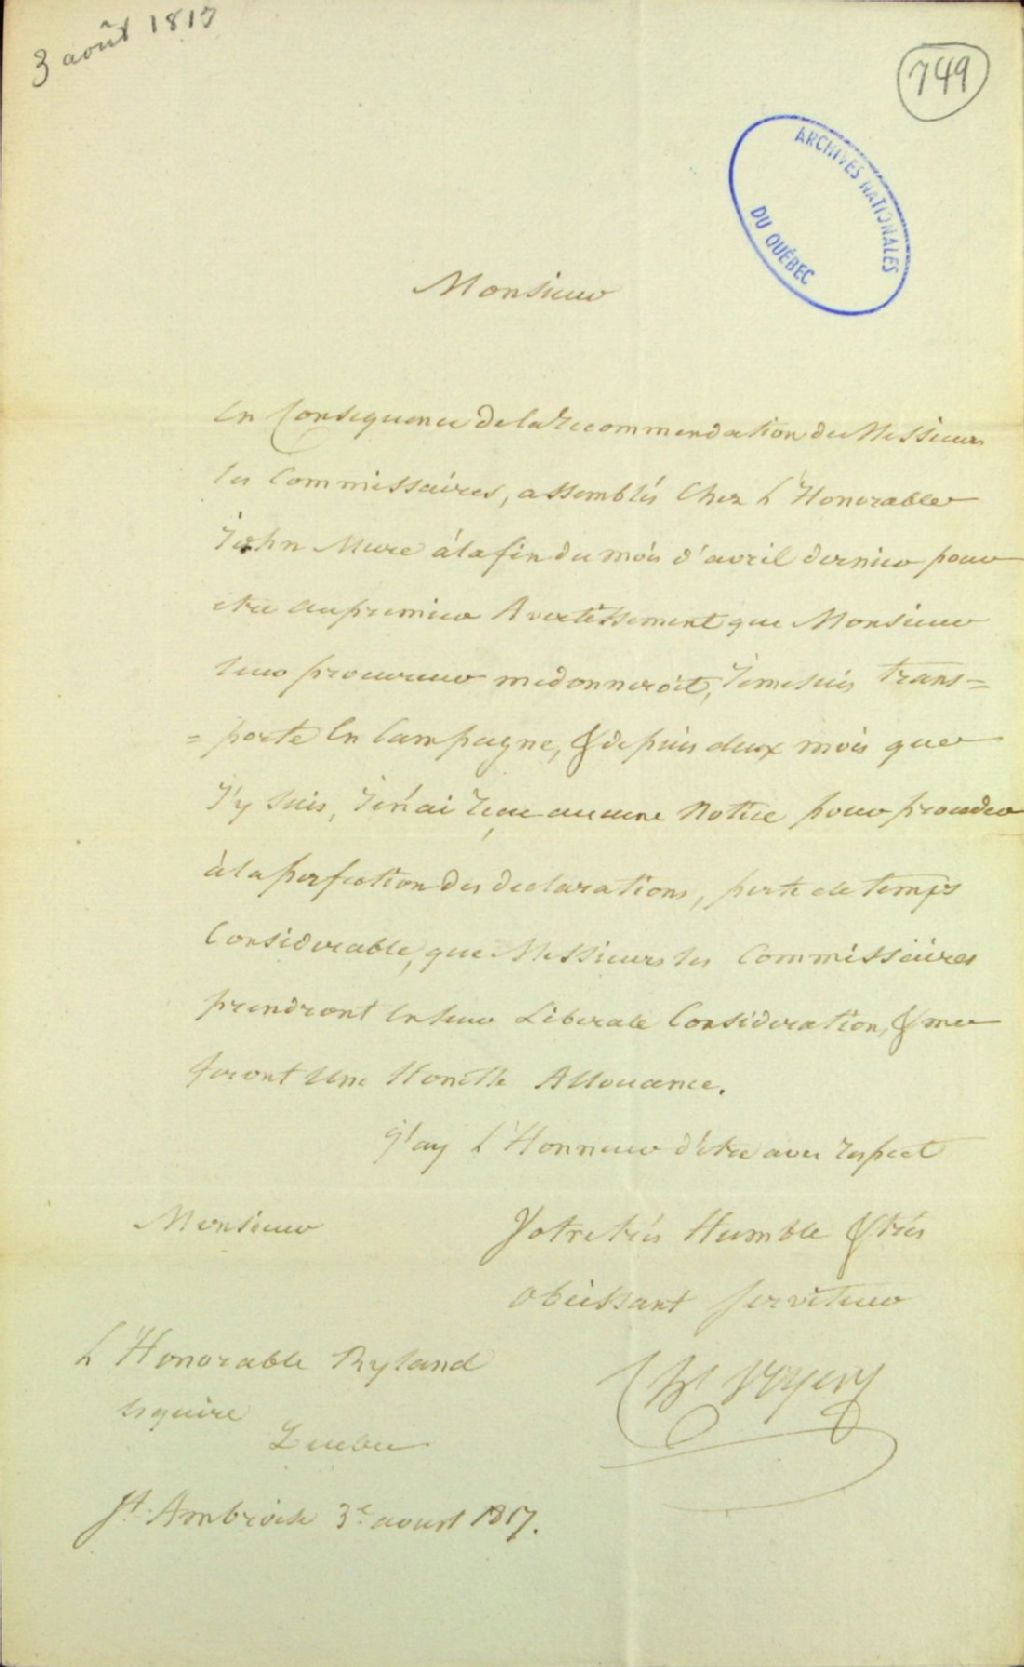 3 août 1817
749
ARCHIVES NATIONALES
DU QUÉBEC
Monsieur
En Consequence de la Recommendation de Messieurs
les Commissaires, assemblés Chez L'Honorable
John Mure à la fin du mois d'avril dernier pour
etre au premier Avertissement que Monsieur
leur procureur me donneroit, Je me suis trans=
=porté En Campagne, & depuis deux mois que
J'y suis, Je n'ai reçu aucune Notice pour proceder
à la perfection des declarations, perte de temps
Considerable, que Messieurs les Commissaires
prendront En leur Liberale Consideration, & me
feront Une Honette Allouance.
J'ay L'Honneur d'etre avec respect
Monsieur
Votre très Humble & très
obeissant serviteur
L'Honorable Ryland
Esquire
Quebec
Chs Voyer
St. Ambroise 3e aoust 1817.